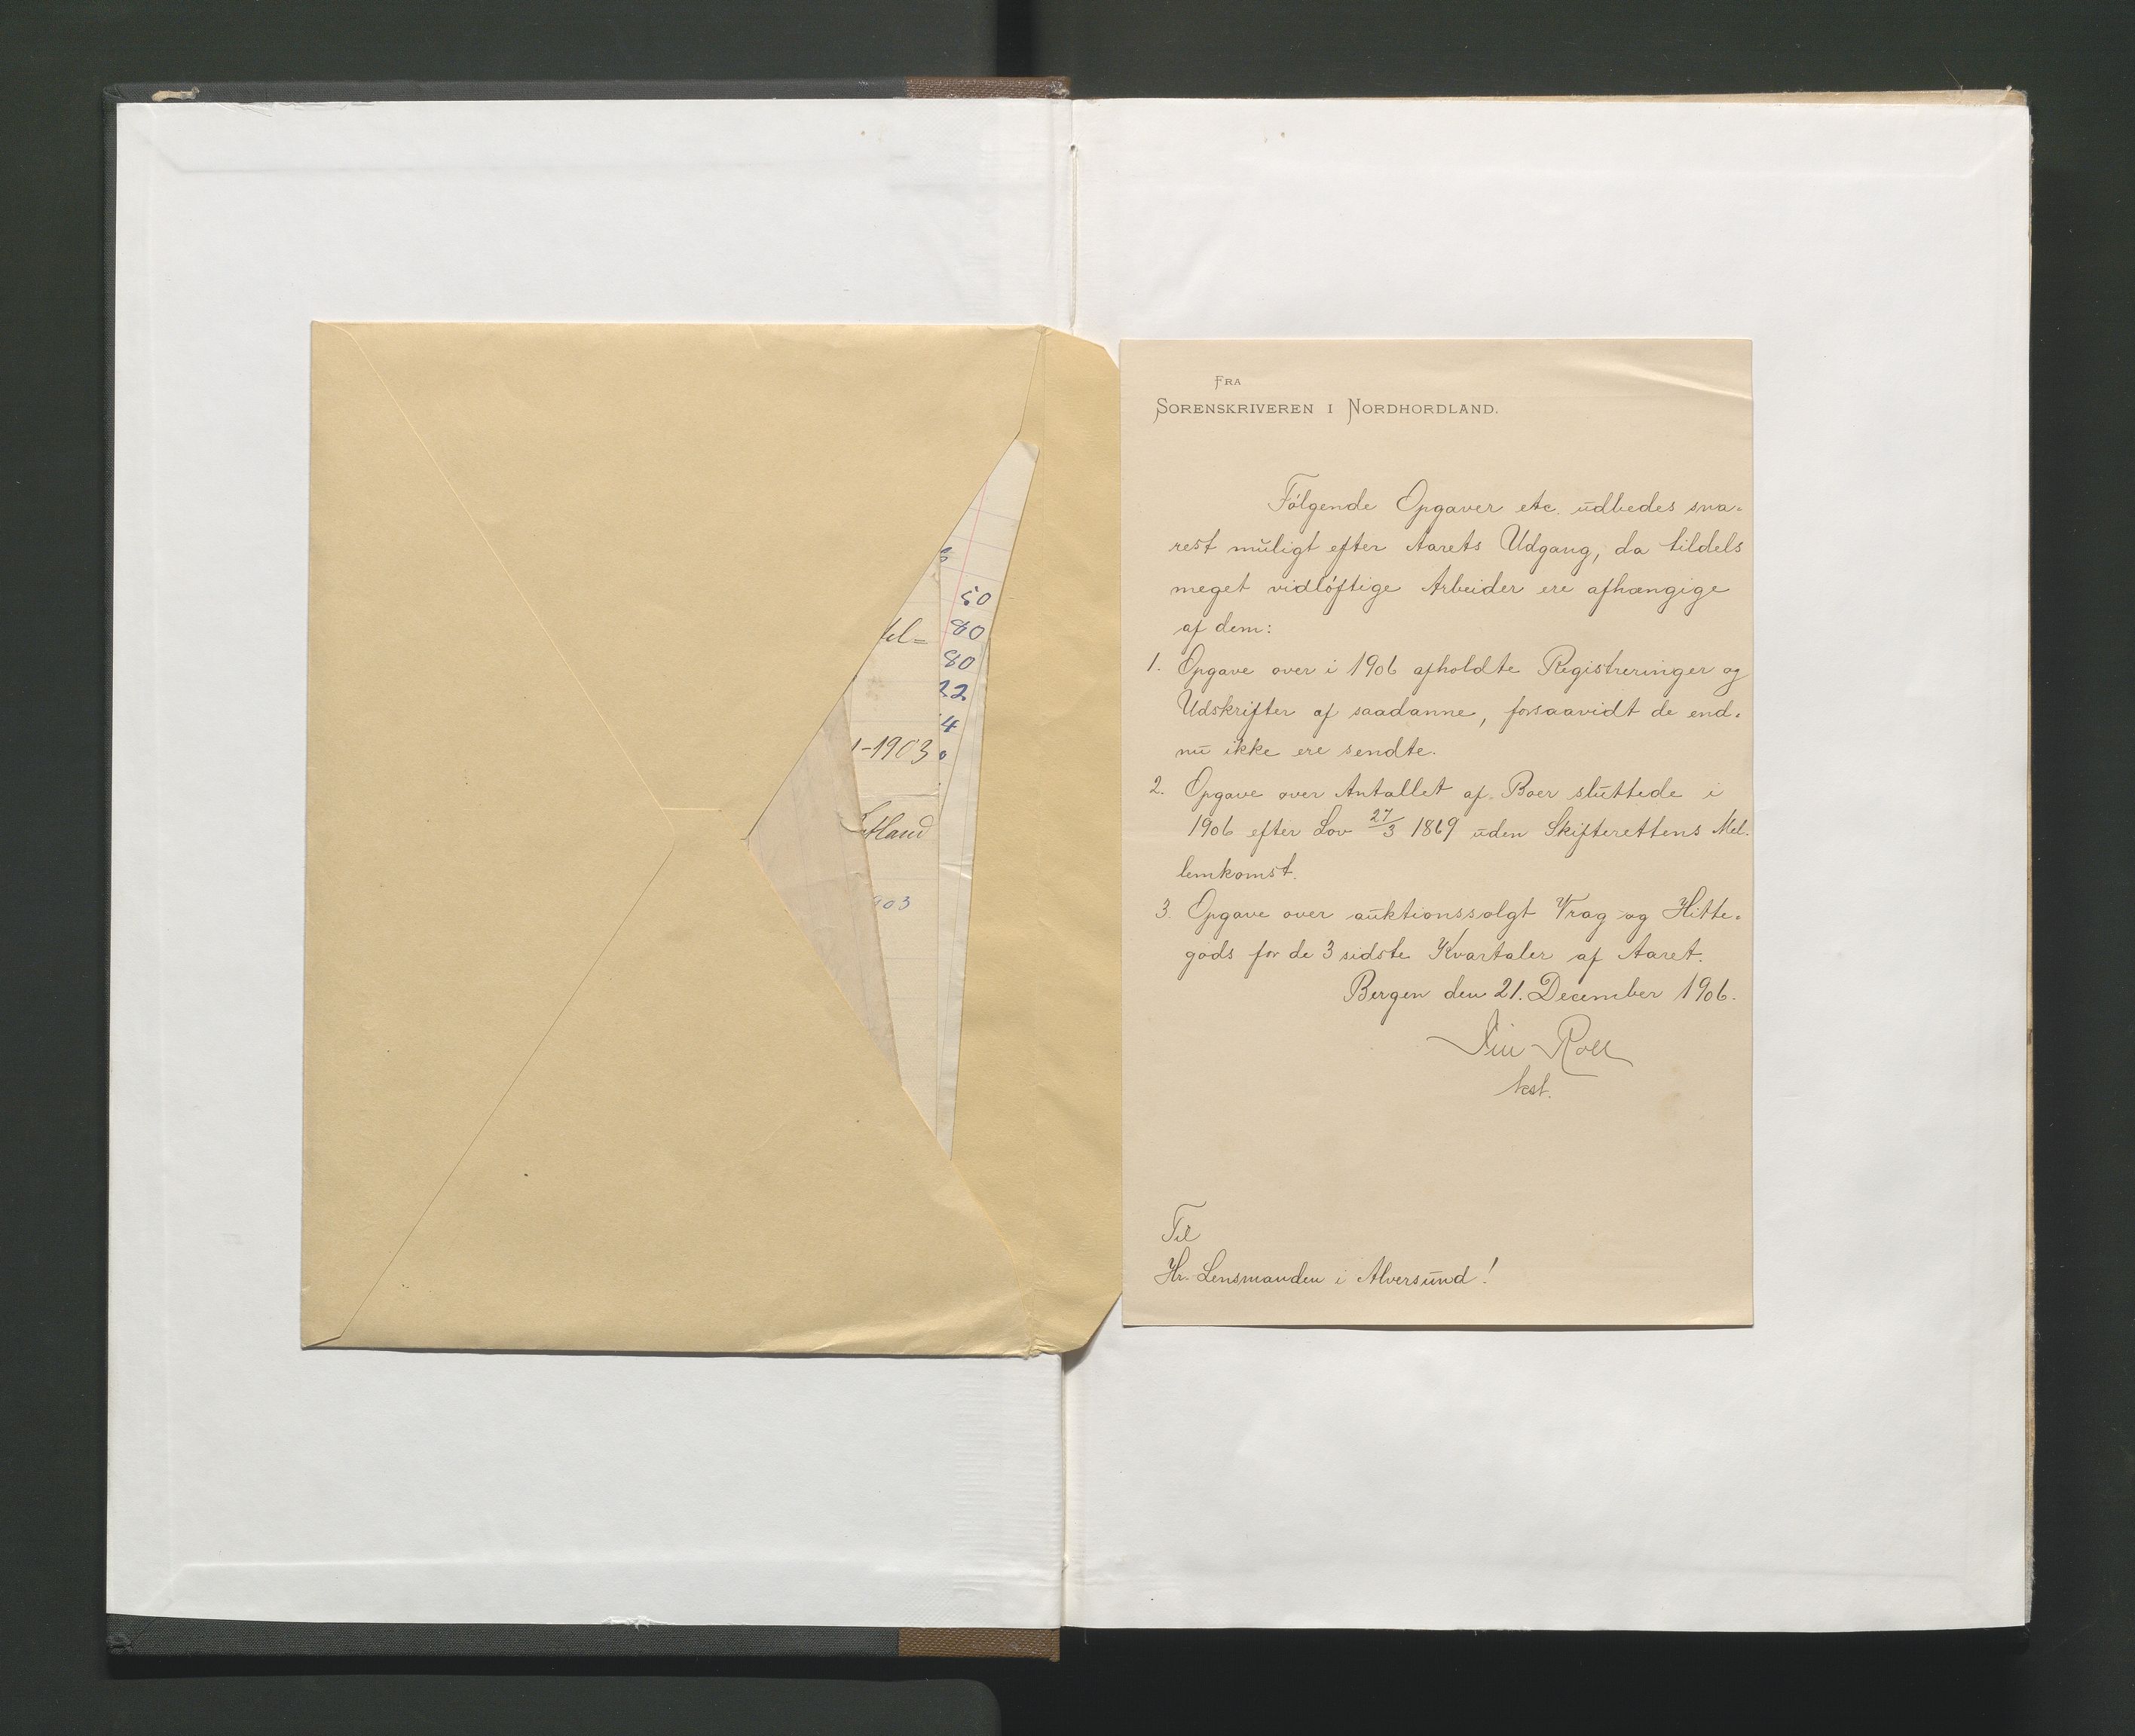 50
tel=
80
80
22
4
1-1903
903
FRA
SORENSKRIVEREN I NORDHORDLAND.
Følgende Opgaver etc. udbedes sna-
rest muligt efter Aarets Udgang, da tildels
meget vidløftige Arbeider ere afhængige
af dem:
1. Opgave over i 1906 afholdte Registreringer og
Udskrifter af saadanne, forsaavidt de end-
nu ikke ere sendte.
2. Opgave over Antallet af Boer sluttede i
1906 efter Lov 27/3 1869 uden Skifterettens Mel-
lemkomst.
3. Opgave over auktionssolgt Vrag og Hitte-
gods for de 3 sidste Kvartaler af Aaret.
Bergen den 21. December 1906.
Roll
kst.
Til
Hr. Lensmanden i Alversund!